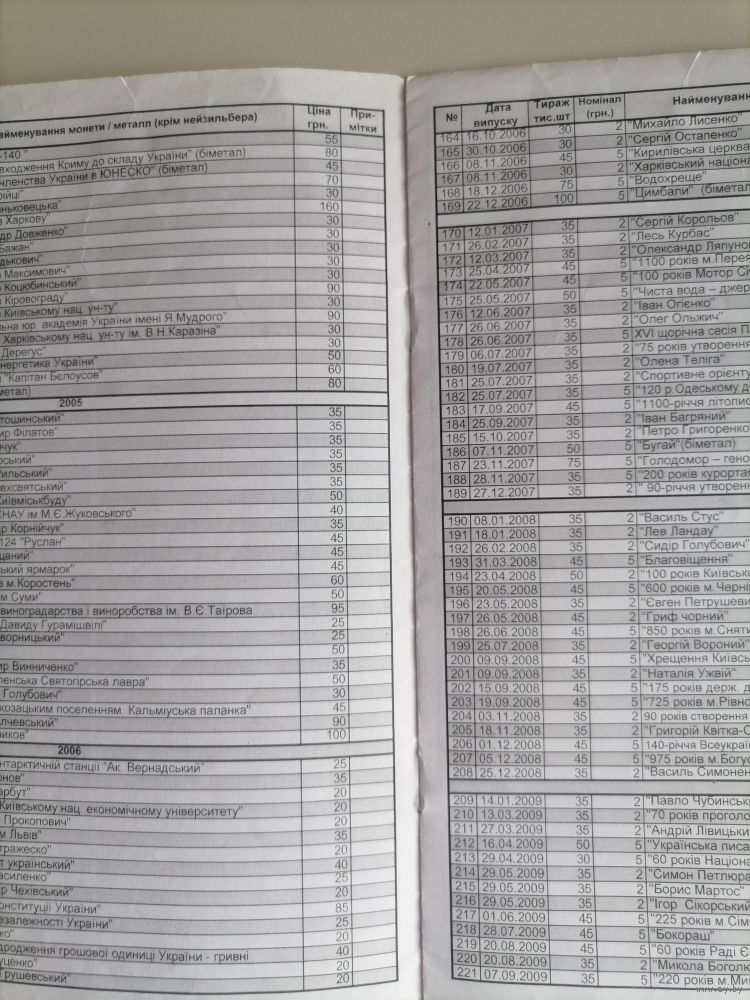 айменування монети / металл (крім нейзильбера) Ціна грн. При- мітки
-140 " 55
входження Криму до складу України" (біметал) 80
членства України в ЮНЕСКО" (біметал) 45
70
30
ньковецька" 160
Харкову" 30
др Довженко" 30
Бажан" 30
дькович" 30
Максимович" 30
Коцюбинський" 90
Кіровограду" 30
Київському нац. ун-ту" 30
льна юр. академія України імені Я.Мудрого" 90
Харківському нац. ун-ту ім. В.Н.Каразіна" 30
Дерегус" 30
нергетика України" 50
"Капітан Бєлоусов" 60
метал) 80
2005
тошинський" 35
ир Філатов" 35
чук" 35
рський" 35
Рильський" 35
ехсвятський" 35
Київміськбуду" 50
ХНАУ ім.М.Є.Жуковського" 40
др Корнійчук" 35
124 "Руслан" 45
щаний" 45
ський ярмарок" 45
в м.Коростень" 60
м.Суми" 50
виноградарства і виноробства ім. В.Є.Таїрова 95
Давиду Гурамішвілі" 25
ворницький" 25
50
ир Винниченко" 35
пенська Святогірська лавра" 50
Голубович" 30
козацьким поселенням. Кальміуська паланка" 45
лчевський" 90
ників" 100
2006
нтарктичній станції "Ак. Вернадський" 25
онов" 35
арбут" 20
Київському нац. економічному університету" 20
Прокопович" 20
м Львів" 35
тражеско" 20
т український" 40
асиленко" 25
р Чехівський" 20
онституції України" 85
езалежності України" 25
ко" 20
дродження грошової одиниці України - гривні 40
уценко" 20
Грушевський" 20
№ Дата випуску Тираж тис.шт Номінал (грн.) Найменуванн
164 16.10.2006 30 2 "Михайло Лисенко"
165 30.10.2006 30 2 "Сергій Остапенко"
166 08.11.2006 45 5 "Кирилівська церква
167 08.11.2006 30 2 "Харківський націона
168 18.12.2006 75 5 "Водохреще"
169 22.12.2006 100 5 "Цимбали" (біметал
170 12.01.2007 35 2 "Сергій Корольов"
171 26.02.2007 35 2 "Лесь Курбас"
172 12.03.2007 35 2 "Олександр Ляпунов
173 25.04.2007 45 5 "1100 років м.Перея
174 22.05.2007 45 5 "100 років Мотор Сі
175 25.05.2007 50 5 "Чиста вода – джер
176 12.06.2007 35 2 "Іван Огієнко"
177 26.06.2007 35 2 "Олег Ольжич"
178 26.06.2007 35 5 XVI щорічна сесія П
179 06.07.2007 35 2 "75 років утворення
180 19.07.2007 35 2 "Олена Теліга"
181 25.07.2007 35 2 "Спортивне орієнту
182 25.07.2007 35 5 "120 р.Одеському д
183 17.09.2007 45 5 "1100-річчя літопис
184 25.09.2007 35 2 "Іван Багряний"
185 15.10.2007 35 2 "Петро Григоренко"
186 07.11.2007 50 5 "Бугай"(біметал)
187 23.11.2007 75 5 "Голодомор – гено
188 28.11.2007 35 5 "200 років курортам
189 27.12.2007 35 2 " 90-річчя утворенн
190 08.01.2008 35 2 "Василь Стус"
191 18.01.2008 35 2 "Лев Ландау"
192 26.02.2008 35 2 "Сидір Голубович"
193 31.03.2008 45 5 "Благовіщення"
194 23.04.2008 50 2 "100 років Київсько
195 20.05.2008 45 5 "600 років м.Черні
196 23.05.2008 35 2 "Євген Петрушеви
197 26.05.2008 45 2 "Гриф чорний"
198 26.06.2008 45 5 "850 років м.Сняти
199 25.07.2008 35 2 "Георгій Вороний"
200 09.09.2008 45 5 "Хрещення Київсь
201 09.09.2008 35 2 "Наталія Ужвій"
202 15.09.2008 45 5 "175 років держ. д
203 19.09.2008 45 5 "725 років м.Рівно
204 03.11.2008 35 2 90 років створення
205 18.11.2008 35 2 "Григорій Квітка-О
206 01.12.2008 45 5 140-річчя Всеукраї
207 05.12.2008 45 5 "975 років м.Богус
208 25.12.2008 35 2 "Василь Симонен
209 14.01.2009 35 2 "Павло Чубинськи
210 13.03.2009 35 2 "70 років проголо
211 27.03.2009 35 2 "Андрій Лівицьки
212 16.04.2009 50 5 "Українська писа
213 29.04.2009 30 5 "60 років Націона
214 29.05.2009 35 2 "Симон Петлюра
215 29.05.2009 35 2 "Борис Мартос"
216 29.05.2009 35 2 "Ігор Сікорський
217 01.06.2009 45 5 "225 років м.Сімс
218 28.07.2009 45 2 "Бокораш"
219 20.08.2009 45 5 "60 років Раді Є
220 20.08.2009 35 2 "Микола Боголю
221 07.09.2009 35 5 "220 років м.Ми